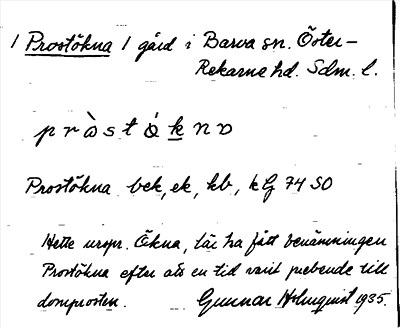 / Prostökna / gård i Barva sn. Öster-
Rekarne hd. Sdm. l.
p r à s t ó k n ɒ
Prostökna bek, ek, kb, kG 74 SO
Hette urspr. Ökna, lär ha fått benämningen
Prostökna efter att en tid varit prebende till
domprosten. Gunnar Holmquist 1935.